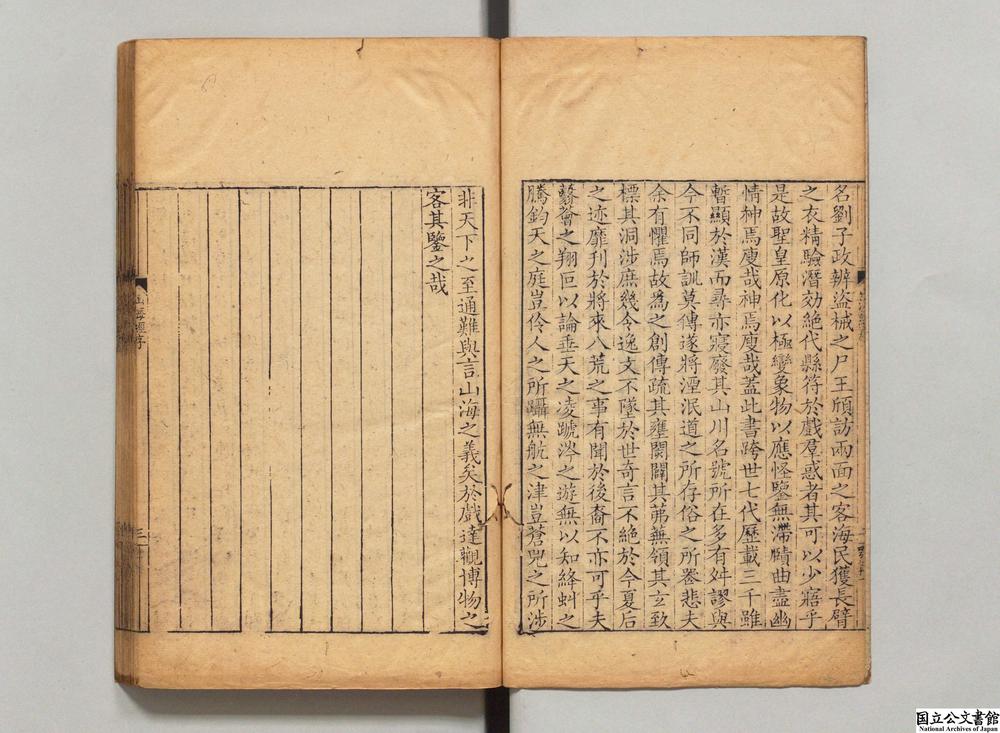 名劉子政辨盜械之尸王頎訪兩面之客海民獲長臂
之衣精驗潛効絶代縣符於戲羣惑者其可以少寤乎
是故聖皇原化以極變象物以應怪鑒無滯賾曲盡幽
情神焉廋哉神焉廋哉蓋此書跨世七代歷載三千雖
暫顯於漢而尋亦寢廢其山川名號所在多有舛謬與
今不同師訓莫傳遂將湮泯道之所存俗之所喪悲夫
余有懼焉故為之創傳疏其壅閡闢其茀蕪領其玄致
標其洞涉庶幾令逸文不墜於世奇言不絶於今夏后
之迹靡刋於將來八荒之事有聞於後裔不亦可乎夫
蘙薈之翔叵以論垂天之凌蹏涔之遊無以知絳虯之
騰鈞天之庭豈伶人之所躡無航之津豈蒼兕之所涉
非天下之至通難與言山海之義矣於戲達觀博物之
客其鑒之哉
山海經序
三
国立公文書館
National Archives of Japan